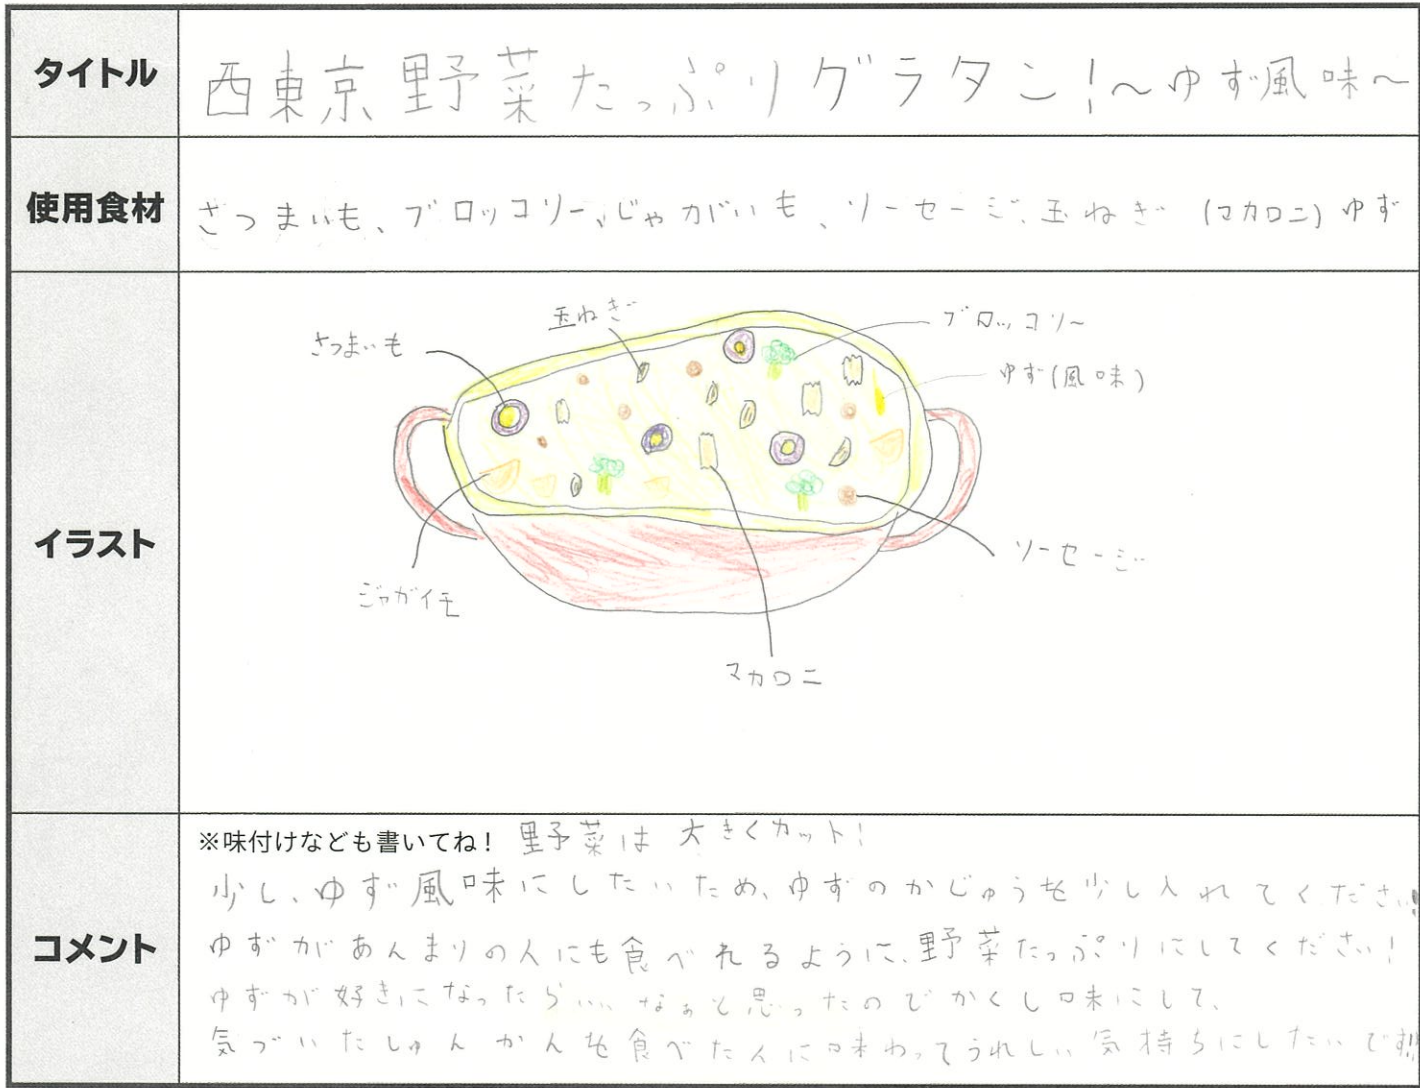 タイトル
西東京野菜たっぷりグラタン!～ゆず風味～
使用食材
さつまいも、ブロッコリー、じゃがいも、ソーセージ、玉ねぎ (マカロニ) ゆず
イラスト
さつまいも
玉ねぎ
ブロッコリー
ゆず(風味)
ソーセージ
ジャガイモ
マカロニ
コメント
※味付けなども書いてね! 野菜は大きくカット!
少し、ゆず風味にしたいため、ゆずのかじゅうを少し入れてください!
ゆずがあんまりの人にも食べれるように、野菜たっぷりにしてください!
ゆずが好きになったらいいなぁと思ったのでかくし味にして、
気づいたしゅんかんを食べた人に味わってうれしい気持ちにしたいです!!